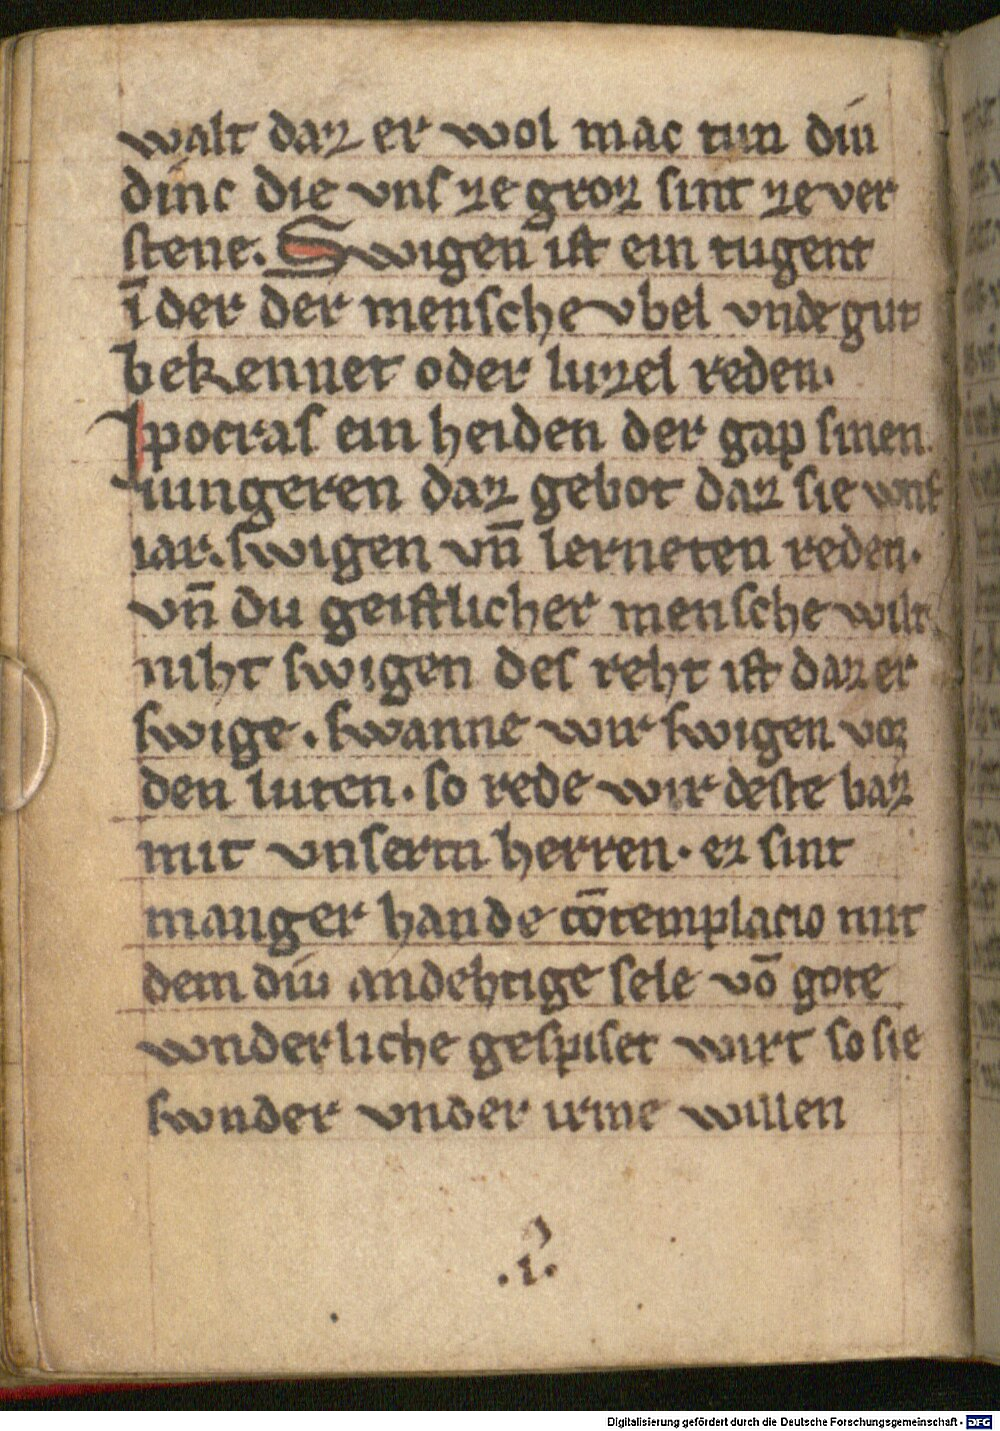 walt daz er wol mac tun diu
dinc die vnſ ze groz ſint ze ver
ſtene. Swigen iſt ein tugent
ī der der menſche vbel vnde gut
bekennet oder luzel reden.
Ipocraſ ein heiden der gap ſinen
iungeren daz gebot daz ſie
iar. ſwigen vn̄ lerneten reden.
vn̄ du geiſtlicher menſche wilt
niht ſwigen deſ reht iſt daz er
ſwige. ſwanne wir ſwigen vor
den luten. ſo rede wir deſte baz
mit vnſerm herren. ez ſint
manger hande cōtemplacio mit
dem diu andehtige ſele vō gote
wnderliche geſpiſet wirt ſo ſie
ſwnder vnder irme willen
.i.
Digitalisierung gefördert durch die Deutsche Forschungsgemeinschaft - DFG